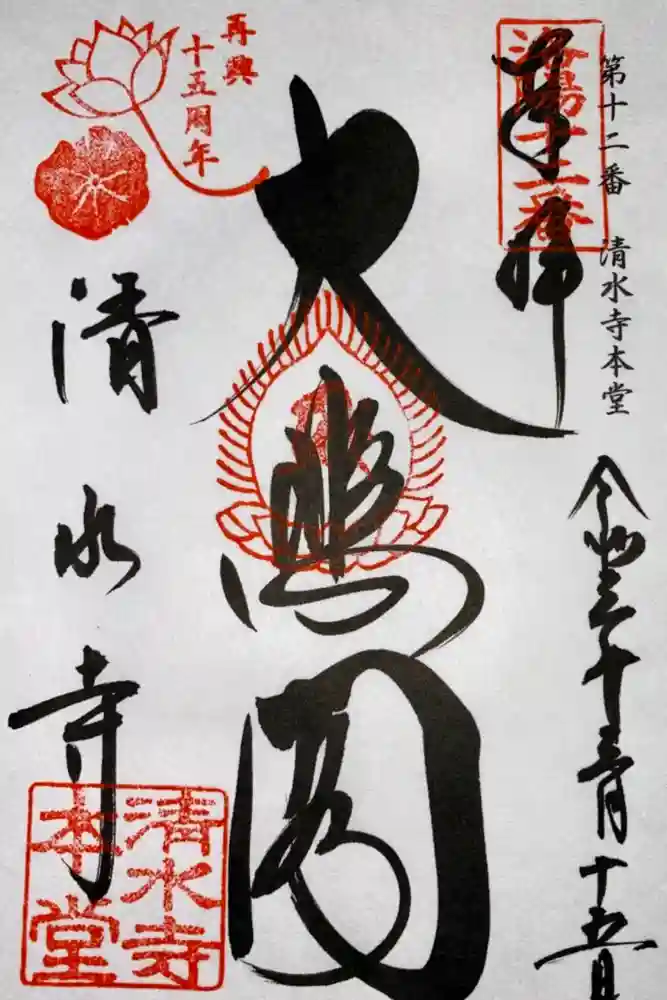 第十二番 清水寺本堂
奉拝
洛陽十二番
令和
月十五日
大悲閣
再興
十五周年
清水寺
清水寺
本堂